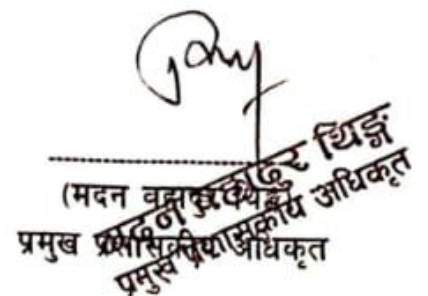 (मदन बहादुर थिङ्ग)
प्रमुख प्रशासकीय अधिकृत
मदन बहादुर थिङ्ग
प्रमुख प्रशासकीय अधिकृत